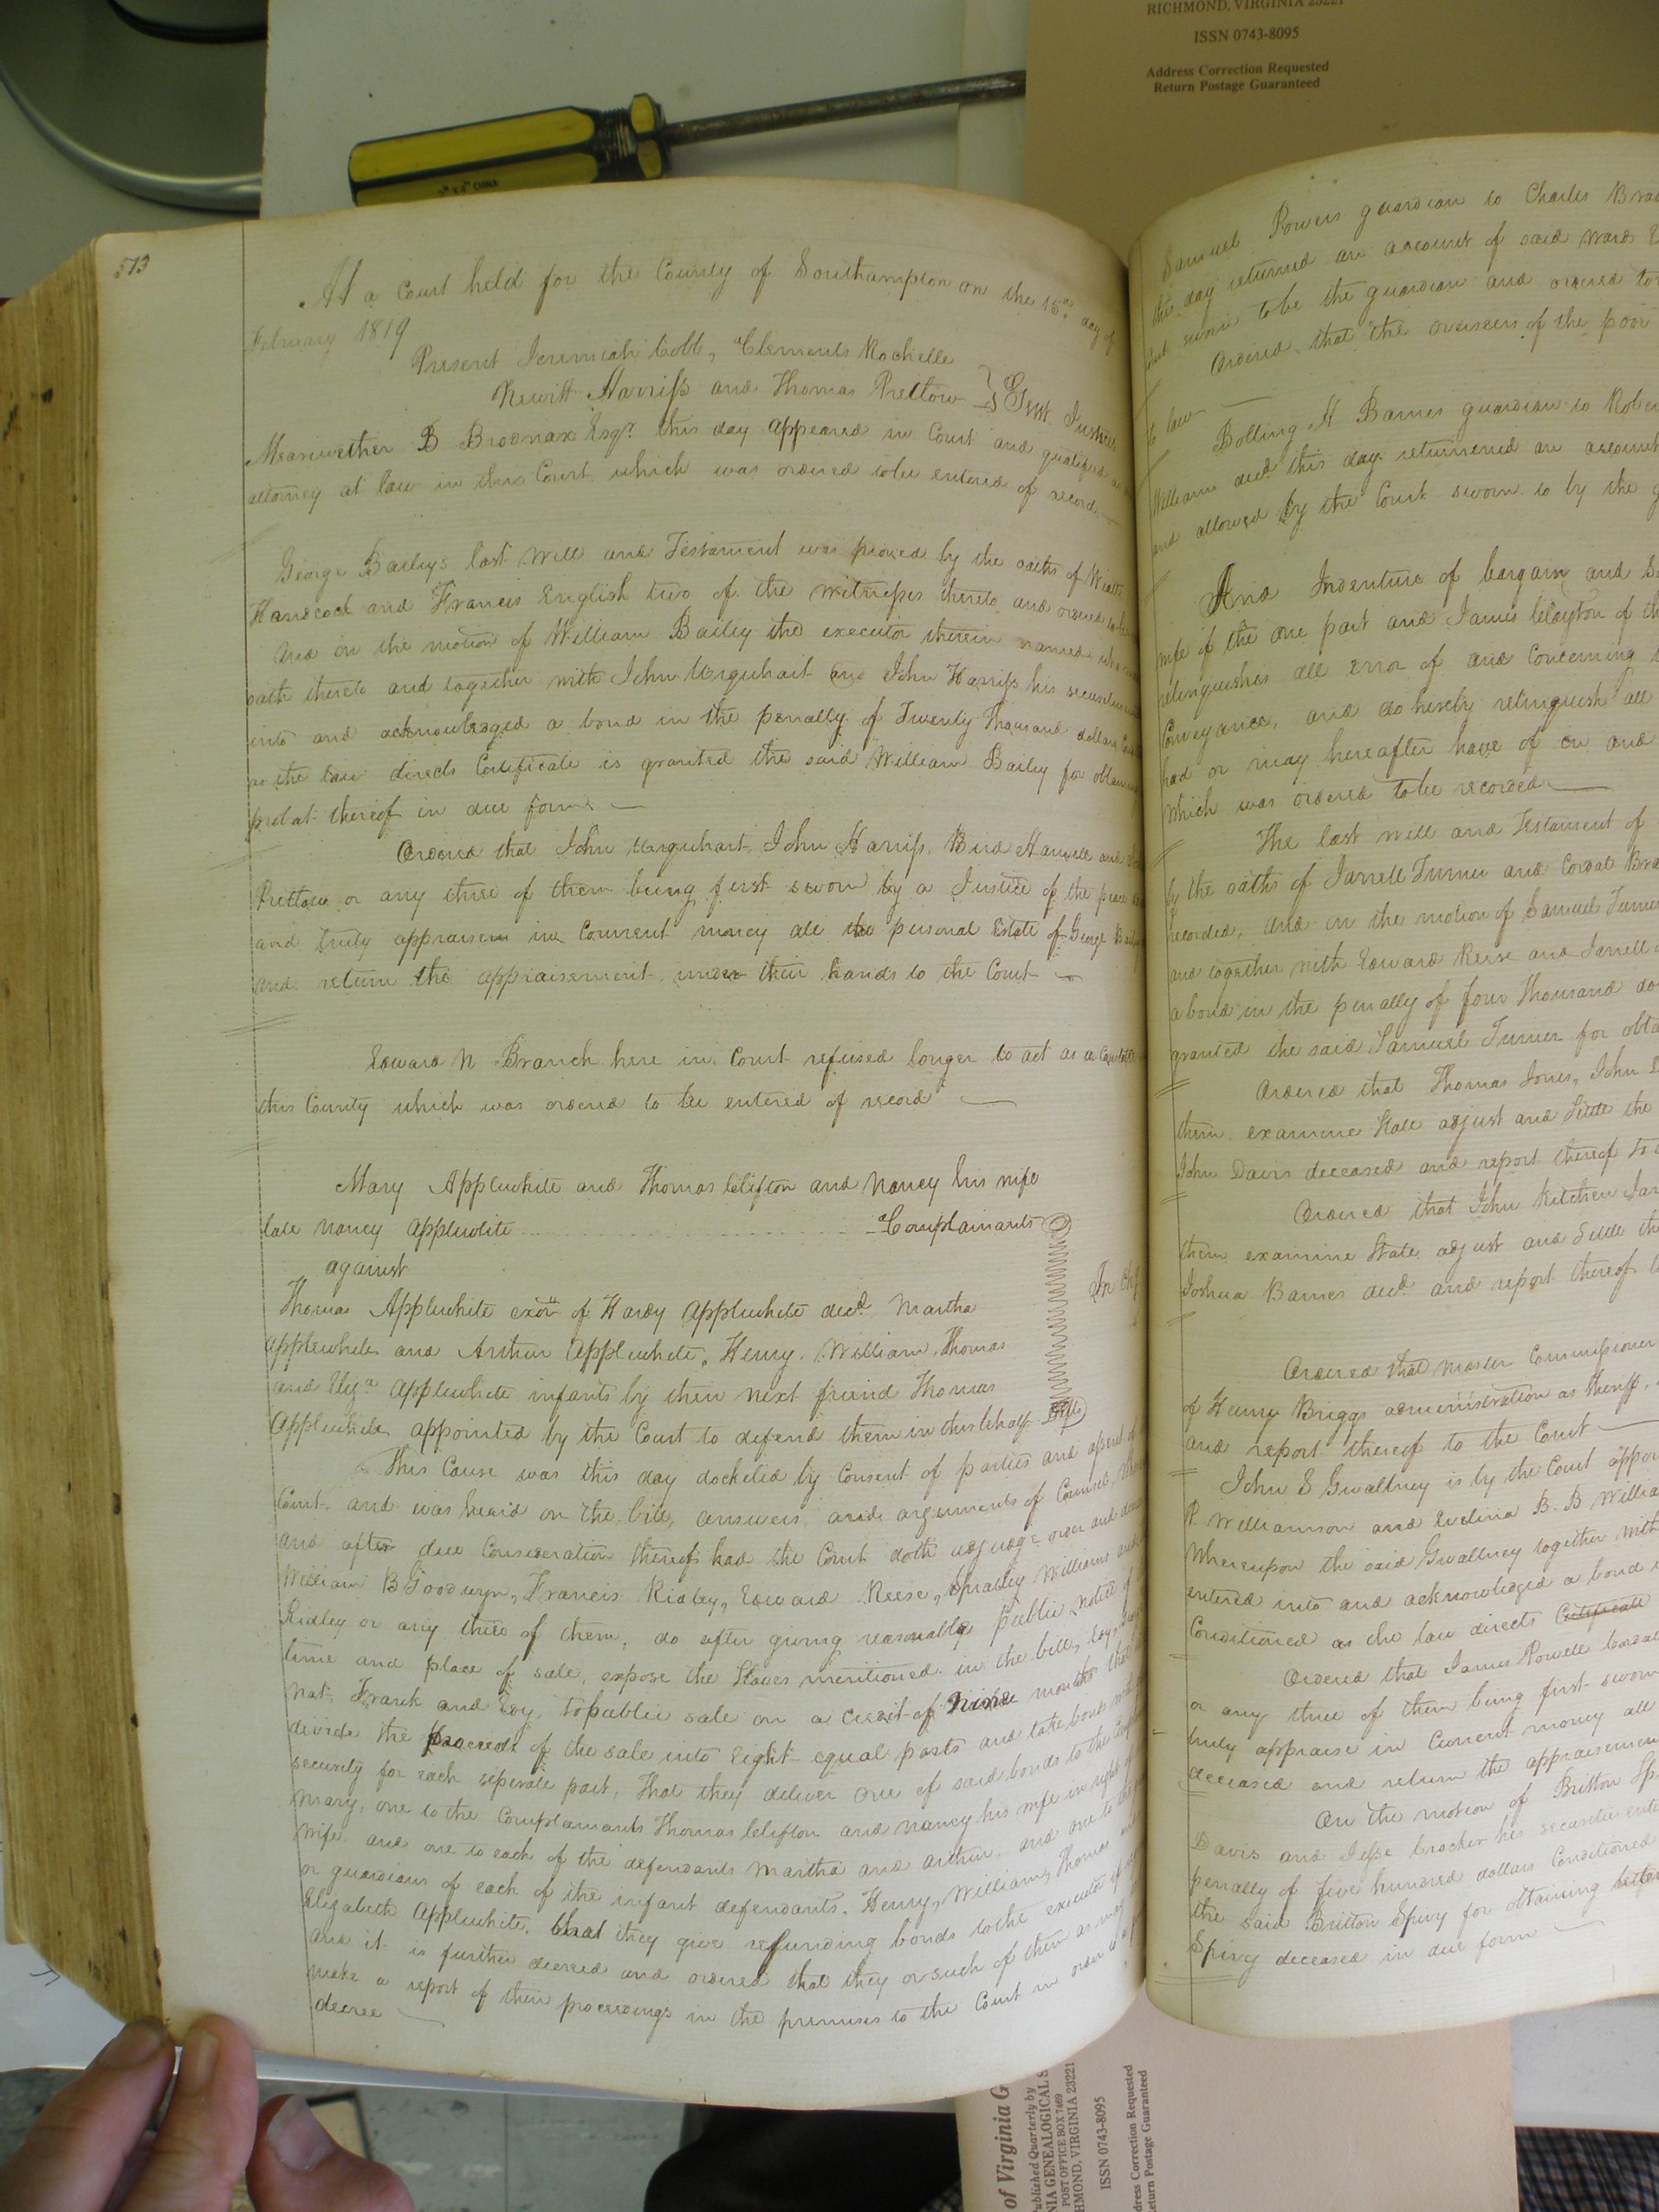 RICHMOND, VIRGINIA 23221
ISSN 0743-8095
Address Correction Requested
Return Postage Guaranteed
CHINA
573
At a Court held for the County of Southampton on the 15th day of
February 1819
Present Jeremiah Cobb, Clements Rochelle
Newitt Harriss and Thomas Pretlow } Gent. Justices
Meriwether B Brodnax Esqr. this day appeared in Court and qualified as
attorney at law in this Court which was ordered to be entered of record
George Baileys last Will and Testament was proved by the oaths of
Handcock and Francis English two of the witnesses thereto and ordered to be
And on the motion of William Bailey the executor therein named who
oath thereto and together with John Urquhart and John Harriss his securities
into and acknowledged a bond in the penalty of Twenty Thousand dollars
as the law directs Certificate is granted the said William Bailey for
probat thereof in due form
Ordered that John Urquhart, John Harriss, Bird Harwell and
Prettlow or any three of them being first sworn by a Justice of the peace
and truly appraise in Current money all the personal Estate of George
and return the appraisement under their hands to the Court
Edward N Branch here in Court refused longer to act as a Constable
this County which was ordered to be entered of record
Mary Applewhite and Thomas Clifton and Nancy his wife
late Nancy Applewite Complainants
against
In Ch
Thomas Applewhite exor of Hardy Applewhite decd. Martha
Applewhite and Arthur Applewhite, Henry, William, Thomas
and Eliza Applewhite infants by their next friend Thomas
Applewhite appointed by the Court to defend them in this behalf Defts
This Cause was this day docketed by Consent of parties and assent of
Court, and was heard on the bill, answers, and arguments of Counsel,
and after due Consideration thereof had the Court doth adjudge order and
William B Goodwyn, Francis Ridley, Edward Reese, Spratley Williams and
Ridley or any three of them, do after giving reasonable public notice of
time and place of sale, expose the Slaves mentioned in the bill,
Nat, Frank and Esy, to public sale on a Credit of Nine months that
divide the proceeds of the sale into Eight equal parts and take bonds with
security for each seperate part, That they deliver one of said bonds to the
Mary, one to the Complainants Thomas Clifton and Nancy his wife in right of
wife, and one to each of the defendants Martha and Arthur, and one to the
or guardians of each of the infant defendants, Henry, William, Thomas and
Elizabeth Applewhite, that they give refunding bonds to the executor of
And it is further decreed and ordered that they or such of them as may
make a report of their proceedings in the premises to the Court in order to a
decree
Samuel Powers guardian to Charles
this day returned an account of said wards
sworn to be the guardian and ordered to
Ordered that the overseers of the poor
to law
Bolling H Barnes guardian to
Williams decd. this day returnened an account
and allowed by the Court sworn to by the
And Indenture of bargain and
wife of the one part and James Clayton of the
relinguishes all error of and Concerning
Conveyance, and do hereby relinguish all
had or may hereafter have of in and
Which was ordered to be recorded
The last will and Testament of
by the oaths of Jarrell Turner and Cordal
recorded, and on the motion of Samuel Turner
and together with Edward Reese and Jarrell
a bond in the penalty of four Thousand
granted the said Samuel Turner for
Ordered that Thomas Jones, John
them, examine State adjust and Settle the
John Davis deceased and report thereof to
Ordered that John Kitchen
them examine State adjust and Settle the
Joshua Barnes decd. and report thereof
Ordered that master Commissioner
of Henry Briggs administration as sheriff,
and report thereof to the Court
John S Gwaltney is by the Court
P. Williamson and Evelina B. B
Whereupon the said Gwaltney together with
entered into and acknowledged a bond
Conditioned as the law directs Certificate
Ordered that James Powell
or any three of them being first sworn
truly appraise in Current money all
deceased and return the appraisement
On the motion of Britton
Davis and Jesse Crocker his securities
penalty of five hundred dollars Conditioned
the said Britton Spivy for obtaining letters
Spivy deceased in due form
of Virginia G
Published Quarterly by
NIA GENEALOGICAL S
POST OFFICE BOX 7469
HMOND, VIRGINIA 23221
ISSN 0743-8095
dress Correction Requested
eturn Postage Guaranteed